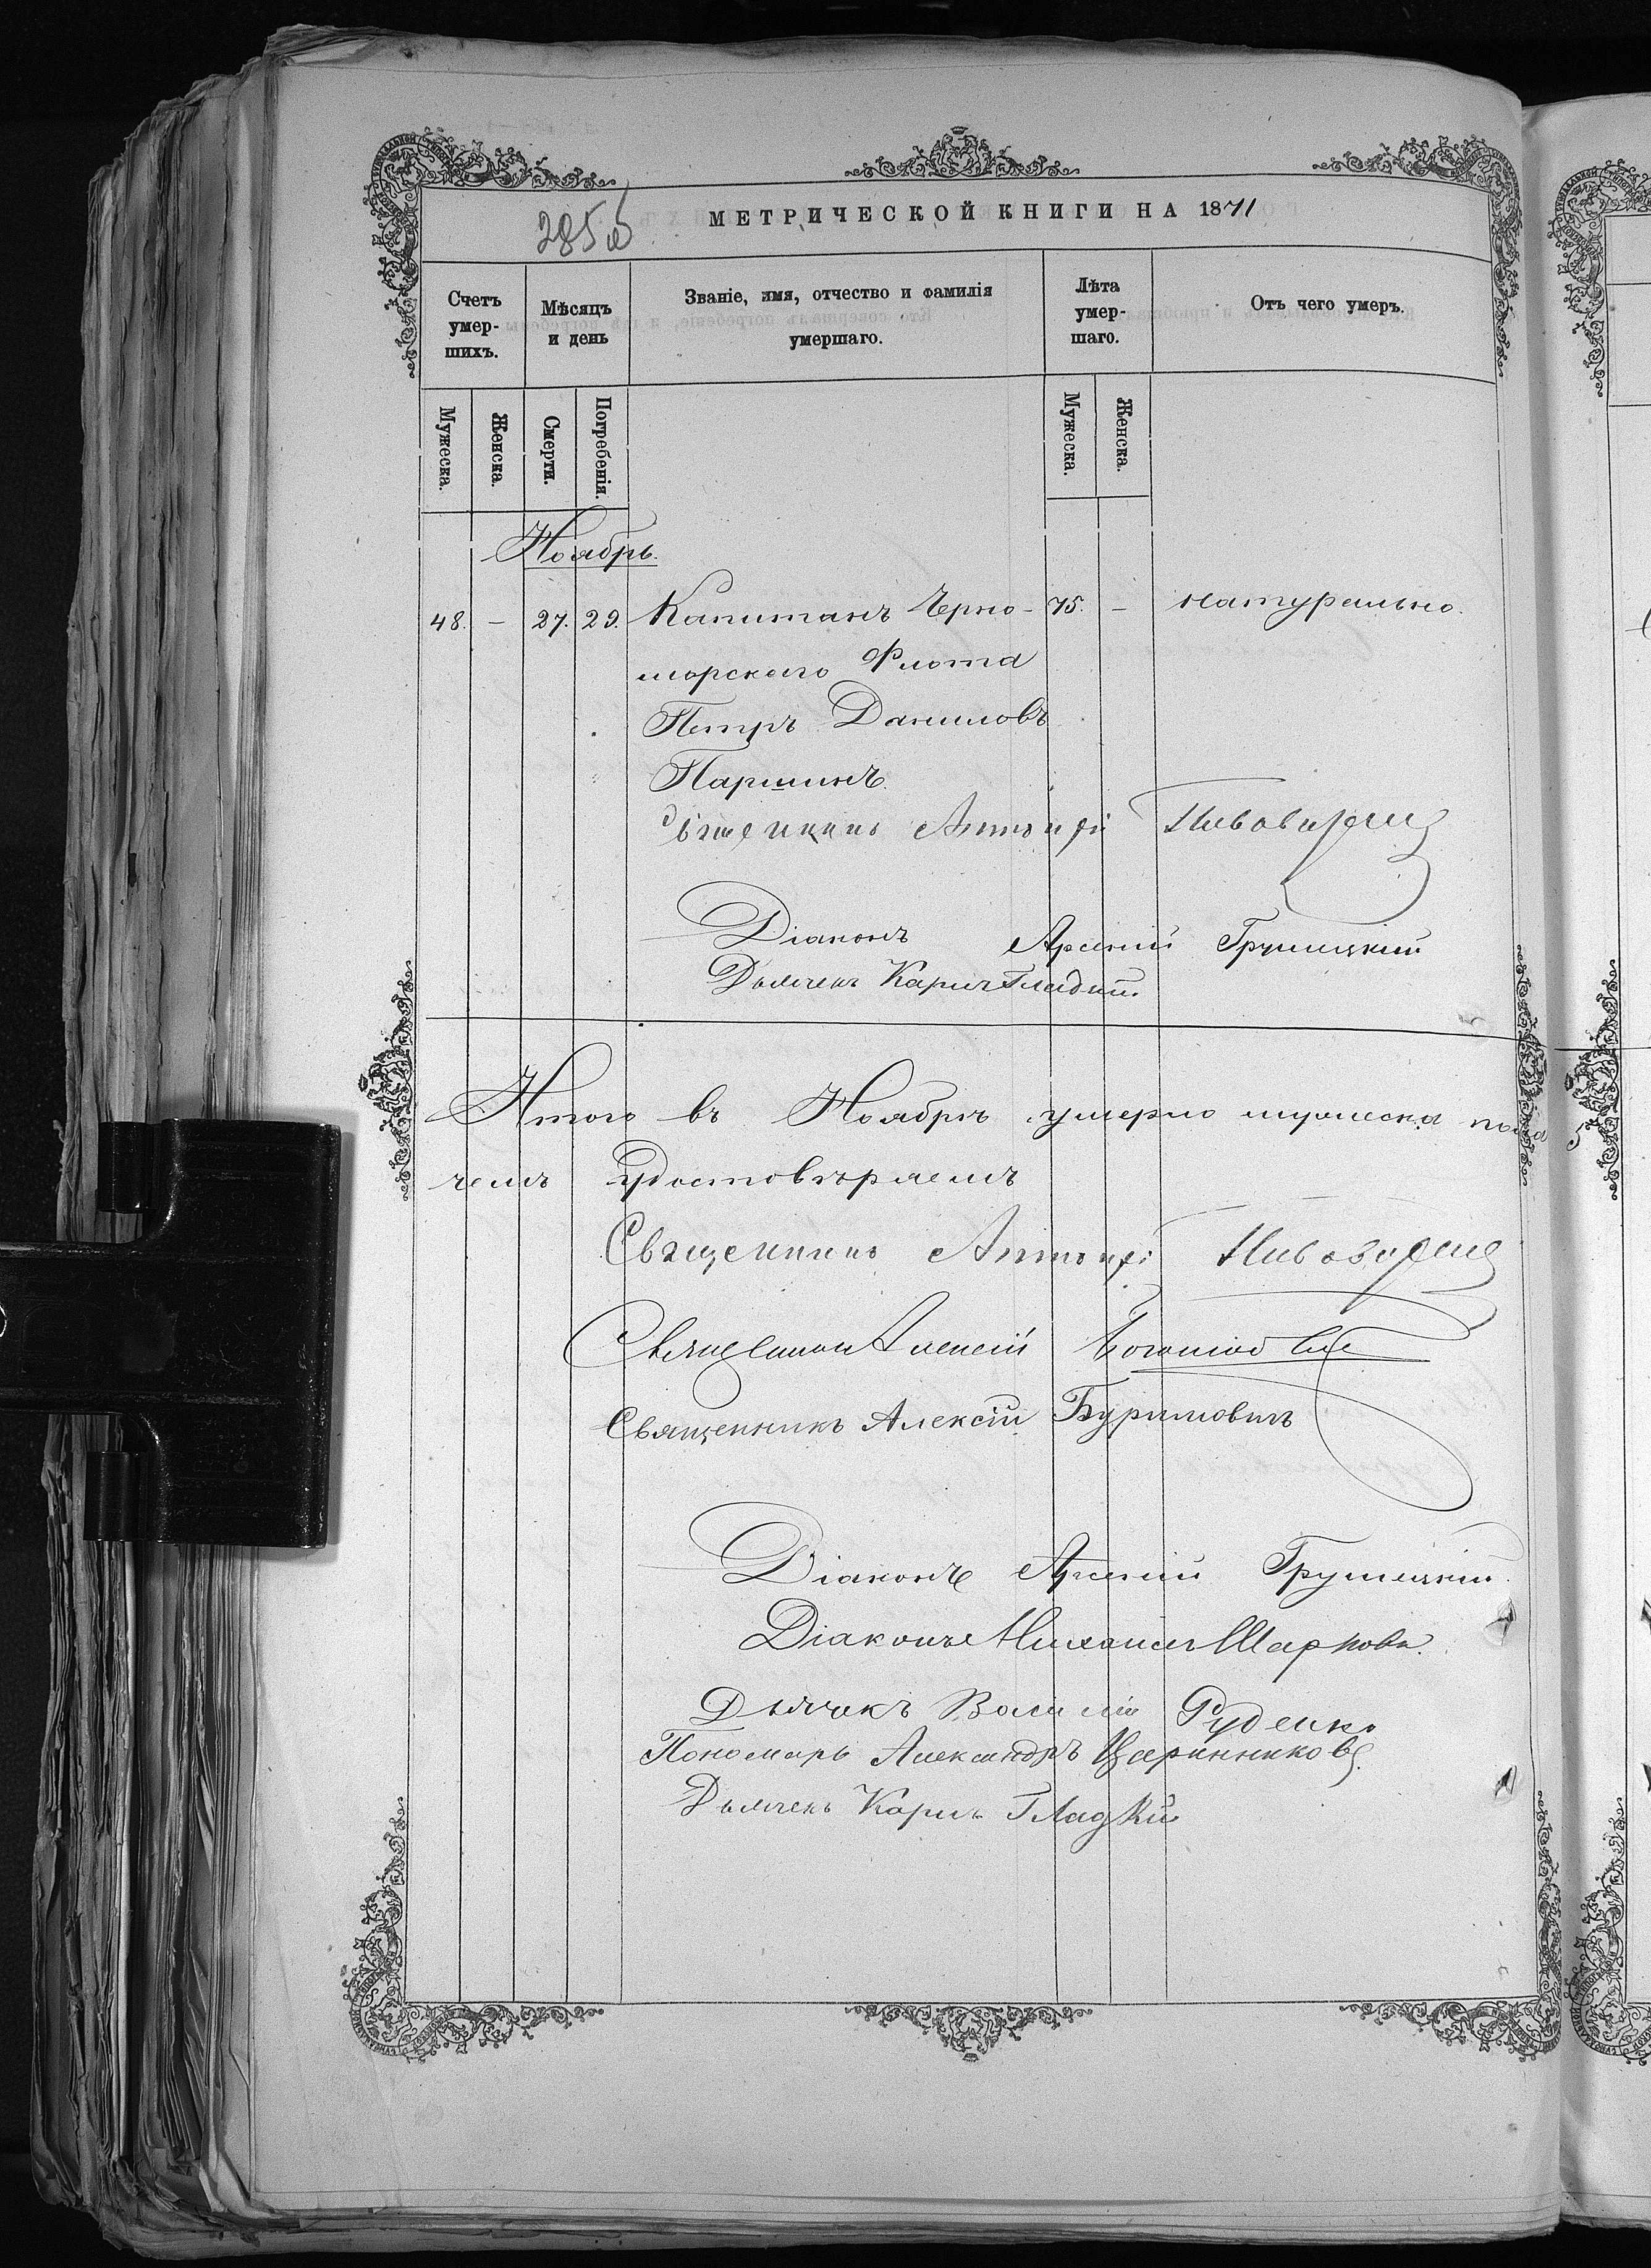 285об
МЕТРИЧЕСКОЙ КНИГИ НА 1871
Счетъ умер- шихъ.
Мѣсяцъ и день
Званіе, имя, отчество и фамилія умершаго.
Лѣта умер- шаго.
Отъ чего умеръ.
Мужеска.
Женска.
Смерти.
Погребенія.
Мужеска.
Женска.
Ноябрь.
48. - 27. 29. Капитанъ Черно- 75. - натурально.
морскаго Флота
Петръ Даниловъ
Паршинъ
Священникъ Антоній
Діаконъ Арсеній Грушецкій
Дьячекъ Карпъ Гладкій
Итого въ Ноябрѣ умерло мужеска пола 5
чемъ удостовѣряемъ
Священникъ Антоній
Священникъ Алексій
Священникъ Алексій Буримовичъ
Діаконъ Арсеній Грушецкій
Діаконъ Михаилъ
Дьячокъ Василій Руденко
Пономарь Александръ Царинниковъ
Дьячекъ Карпъ Гладкій